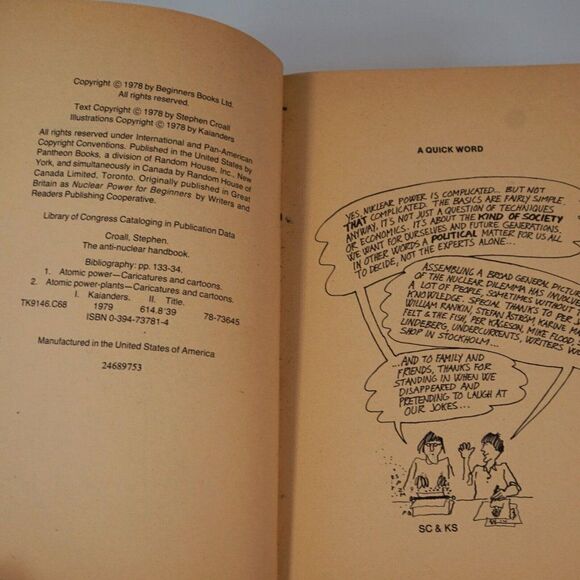 Copyright © 1978 by Beginners Books Ltd.
All rights reserved.
Text Copyright © 1978 by Stephen Croall
Illustrations Copyright © 1978 by Kaianders
All rights reserved under International and Pan-American
Copyright Conventions. Published in the United States by
Pantheon Books, a division of Random House, Inc., New
York, and simultaneously in Canada by Random House of
Canada Limited, Toronto. Originally published in Great
Britain as Nuclear Power for Beginners by Writers and
Readers Publishing Cooperative.
Library of Congress Cataloging in Publication Data
Croall, Stephen.
The anti-nuclear handbook.
Bibliography: pp. 133-34.
1. Atomic power—Caricatures and cartoons.
2. Atomic power-plants—Caricatures and cartoons.
I. Kaianders. II. Title.
TK9146.C68 1979 614.8'39 78-73645
ISBN 0-394-73781-4
Manufactured in the United States of America
24689753
A QUICK WORD
YES, NUCLEAR POWER IS COMPLICATED... BUT NOT
THAT COMPLICATED. THE BASICS ARE FAIRLY SIMPLE.
ANYWAY, IT'S NOT JUST A QUESTION OF TECHNIQUES
OR ECONOMICS. IT'S ABOUT THE KIND OF SOCIETY
WE WANT FOR OURSELVES AND FUTURE GENERATIONS.
IN OTHER WORDS A POLITICAL MATTER FOR US ALL
TO DECIDE, NOT THE EXPERTS ALONE...
ASSEMBLING A BROAD GENERAL PICTURE
OF THE NUCLEAR DILEMMA HAS INVOLVED
A LOT OF PEOPLE, SOMETIMES WITHOUT
KNOWLEDGE. SPECIAL THANKS TO PER
WILLIAM RANKIN, STEFAN ÅSTRÖM, KARINE
FELT & THE FISH, PER KÅGESON, MIKE FLOOD,
LINDEBERG, UNDERCURRENTS, WRITERS
SHOP IN STOCKHOLM...
...AND TO FAMILY AND
FRIENDS, THANKS FOR
STANDING IN WHEN WE
DISAPPEARED AND
PRETENDING TO LAUGH AT
OUR JOKES...
SC & KS